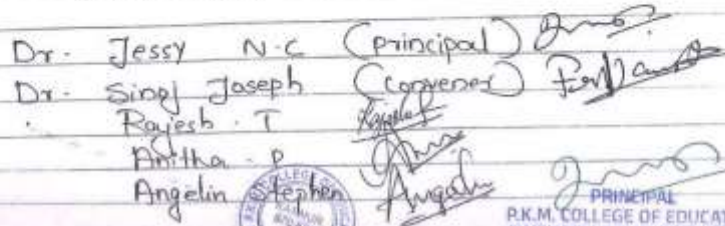 Dr. Jessy N.C (principal)
Dr. Sinoj Joseph (convener)
Rajesh. T
Anitha. P
Angelin Stephen
PRINCIPAL
P.K.M. COLLEGE OF EDUCA